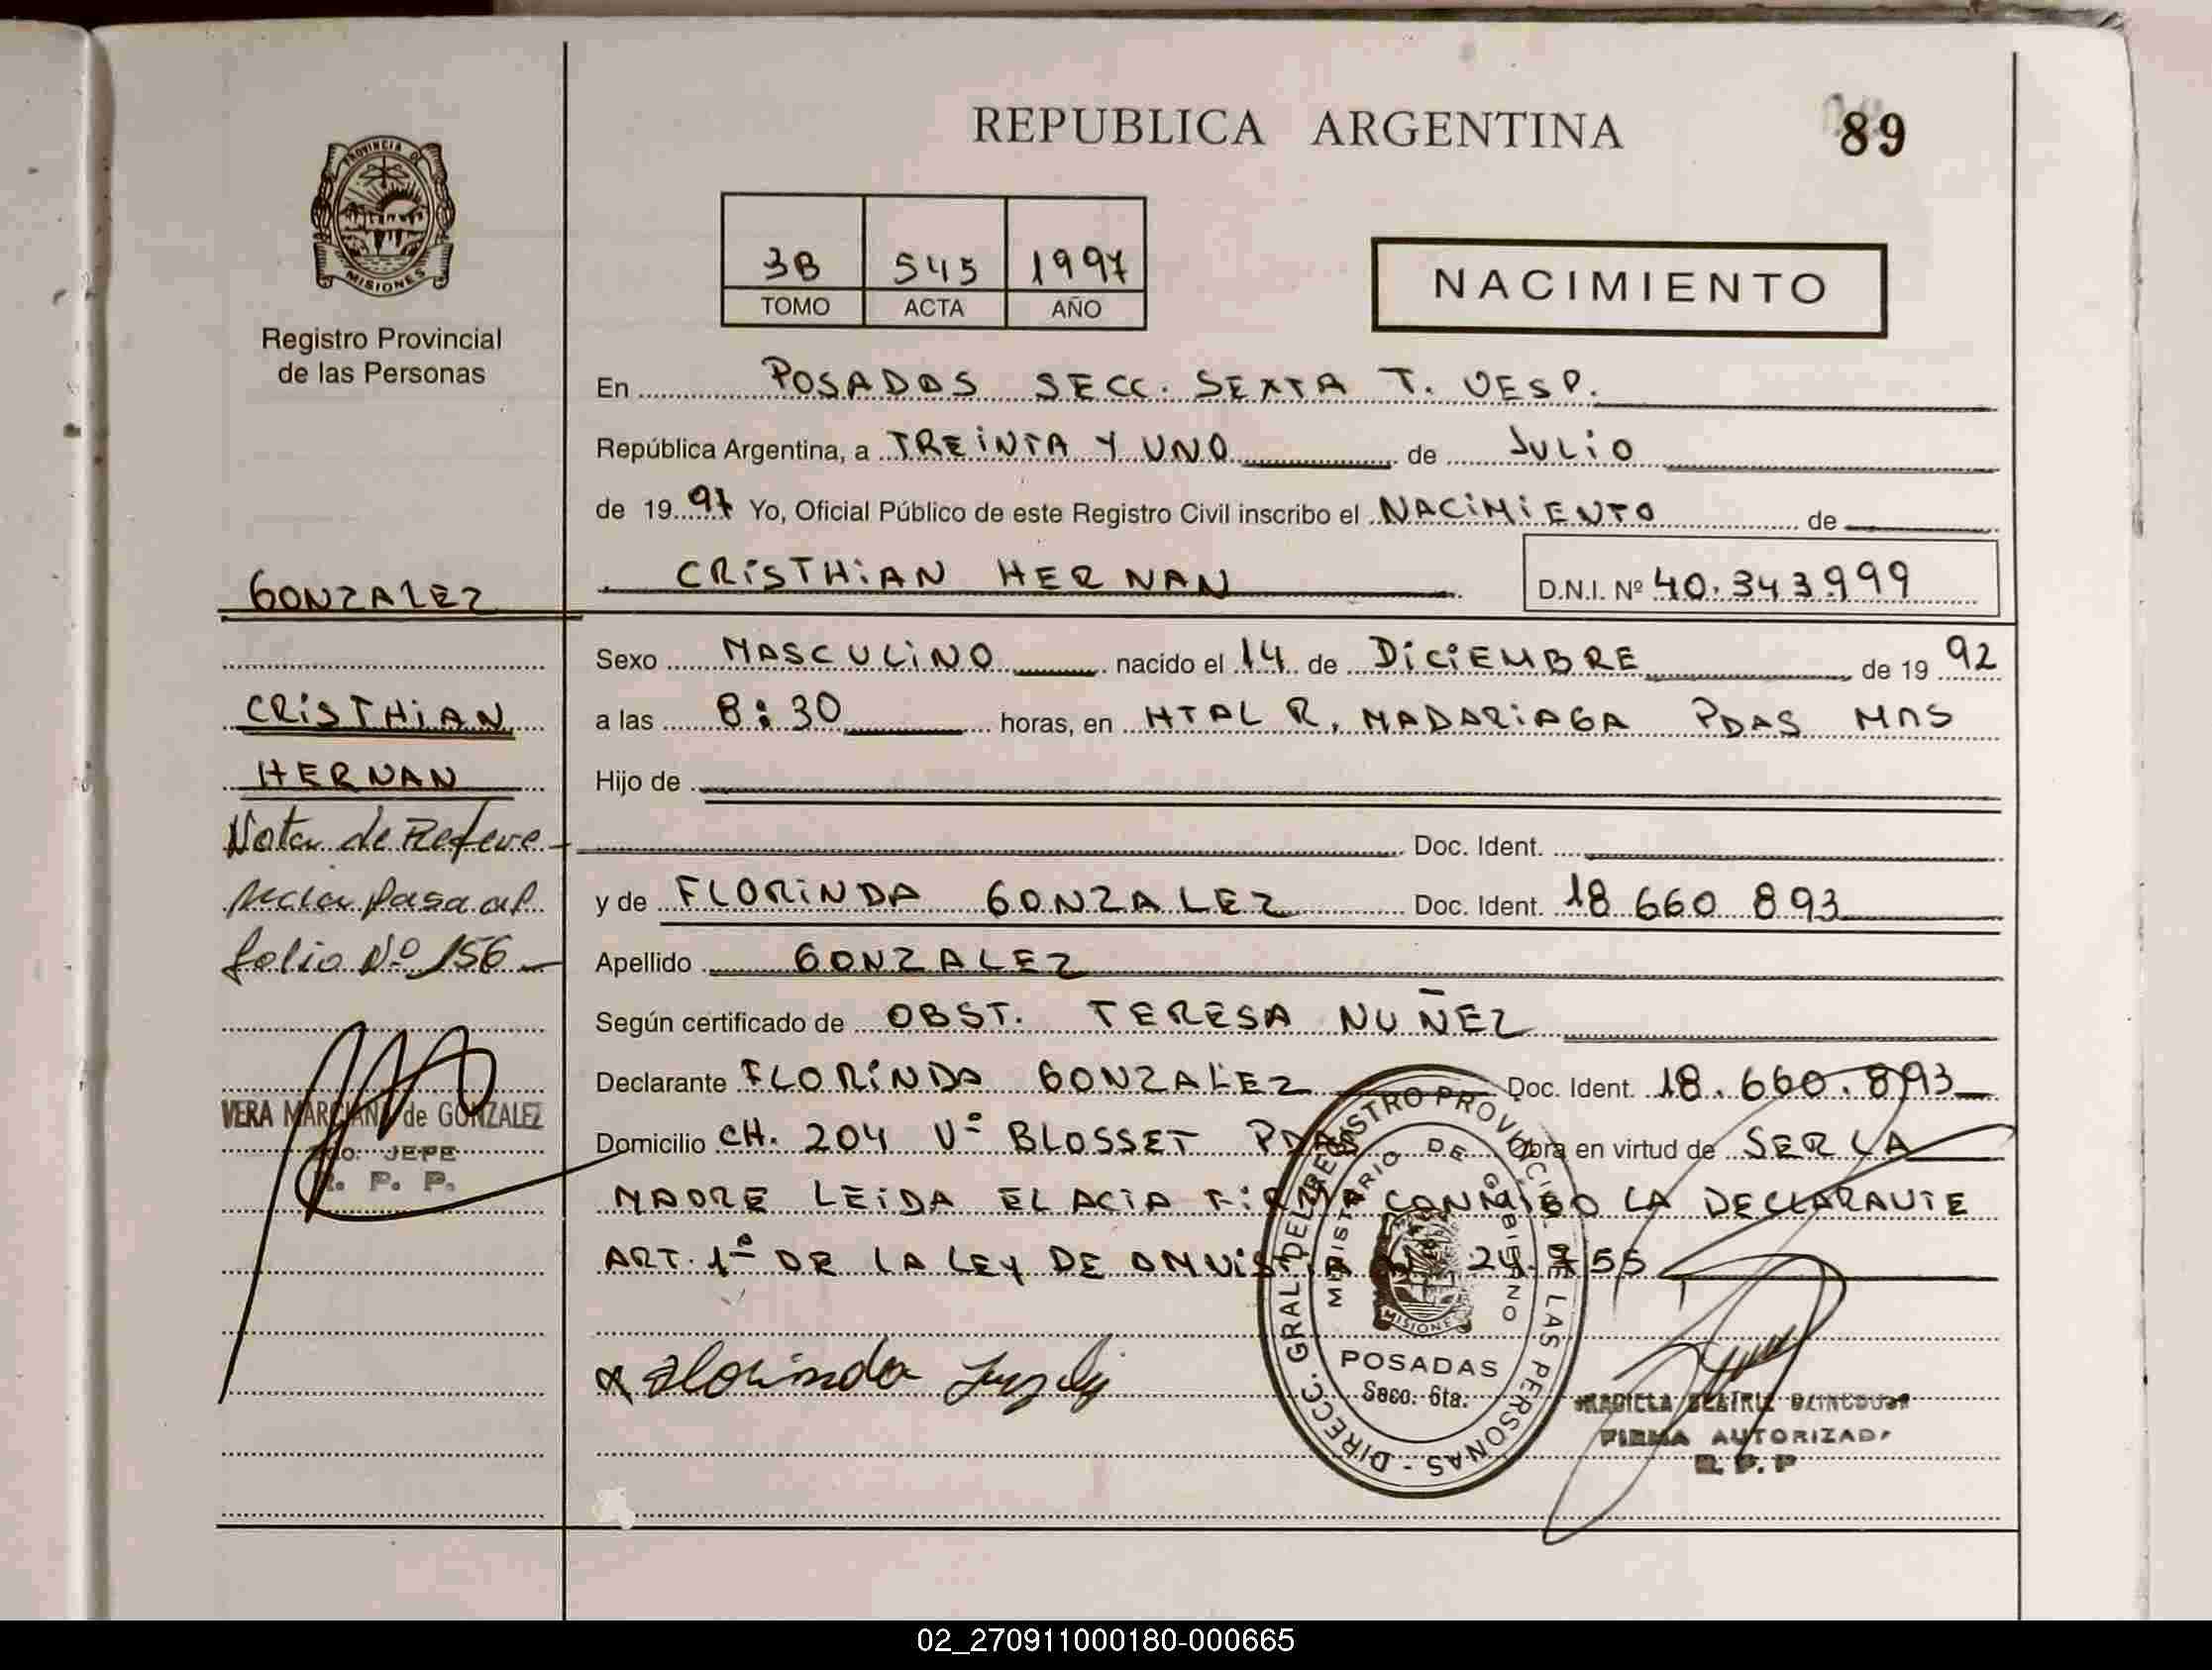 REPUBLICA ARGENTINA
89
PROVINCIA DE
MISIONES
Registro Provincial
de las Personas
3B 545 1997
TOMO ACTA AÑO
NACIMIENTO
En POSADAS SECC. SEXTA T. VESP.
República Argentina, a TREINTA Y UNO de JULIO
de 1997 Yo, Oficial Público de este Registro Civil inscribo el NACIMIENTO de
CRISTHIAN HERNAN D.N.I. Nº 40.343999
GONZALEZ
CRISTHIAN
HERNAN
Nota de Refere-
ncia pasa al
folio Nº 156
VERA MARCIANA de GONZALEZ
JEFE
R. P. P.
Sexo MASCULINO nacido el 14 de DICIEMBRE de 1992
a las 8:30 horas, en HTAL R. MADARIAGA PDAS MNS
Hijo de
Doc. Ident.
y de FLORINDA GONZALEZ Doc. Ident. 18 660 893
Apellido GONZALEZ
Según certificado de OBST. TERESA NUÑEZ
Declarante FLORINDA GONZALEZ Doc. Ident. 18.660.893
Domicilio CH. 204 Vº BLOSSET PDAS Obra en virtud de SER LA
MADRE LEIDA EL ACTA FIRMA CONMIGO LA DECLARANTE
ART. 1º DE LA LEY DE AMNISTIA 24.755
Florinda
DIRECC. GRAL DEL REGISTRO PROVINCIAL DE LAS PERSONAS
MINISTERIO DE GOBIERNO
MISIONES
POSADAS
Secc. 6ta.
BEATRIZ
FIRMA AUTORIZADA
R. P. P
02_270911000180-000665